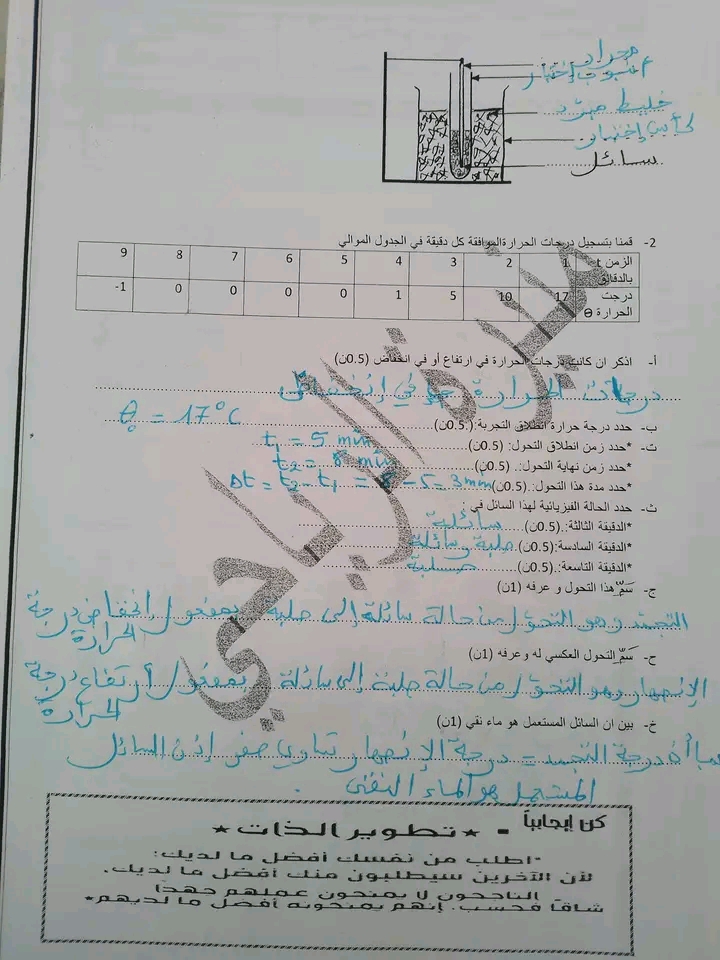 محرار
أنبوب إختبار
خليط مبرّد
كأس إختبار
سائل
2- قمنا بتسجيل درجات الحرارة الموافقة كل دقيقة في الجدول الموالي
الزمن t بالدقائق 1 2 3 4 5 6 7 8 9
درجت الحرارة Θ 17 10 5 1 0 0 0 0 -1
أ- اذكر ان كانت درجات الحرارة في ارتفاع أو في انخفاض (0.5ن)
درجات الحرارة في إنخفاض
ب- حدد درجة حرارة انطلاق التجربة:(0.5ن) θ₀ = 17°C
ت- *حدد زمن انطلاق التحول: (0.5ن) t₁ = 5 min
*حدد زمن نهاية التحول: (0.5ن) t₂ = 8 min
*حدد مدة هذا التحول: (0.5ن) Δt = t₂ - t₁ = 8 - 5 = 3 min
ث- حدد الحالة الفيزيائية لهذا السائل في :
*الدقيقة الثالثة:(0.5ن) سائلة
*الدقيقة السادسة:(0.5ن) صلبة وسائلة
*الدقيقة التاسعة:(0.5ن) صلبة
ج- سَمِّ هذا التحول و عرفه (1ن)
التجمد وهو التحول من حالة سائلة إلى صلبة بمفعول إنخفاض درجة الحرارة
ح- سَمِّ التحول العكسي له وعرفه (1ن)
الإنصهار وهو التحول من حالة صلبة إلى سائلة بمفعول أرتفاع درجة الحرارة
خ- بين ان السائل المستعمل هو ماء نقي (1ن)
بما أن درجة التجمد = درجة الإنصهار تساوي صفر إذن السائل
المستعمل هو الماء النقي .
منيرة الرياحي
كن إيجابياً ▪ ★ تطوير الذات ★
"اطلب من نفسك أفضل ما لديك:
لأن الآخرين سيطلبون منك أفضل ما لديك.
الناجحون لا يمنحون عملهم جهداً
شاقاً فحسب. إنهم يمنحونه أفضل ما لديهم"